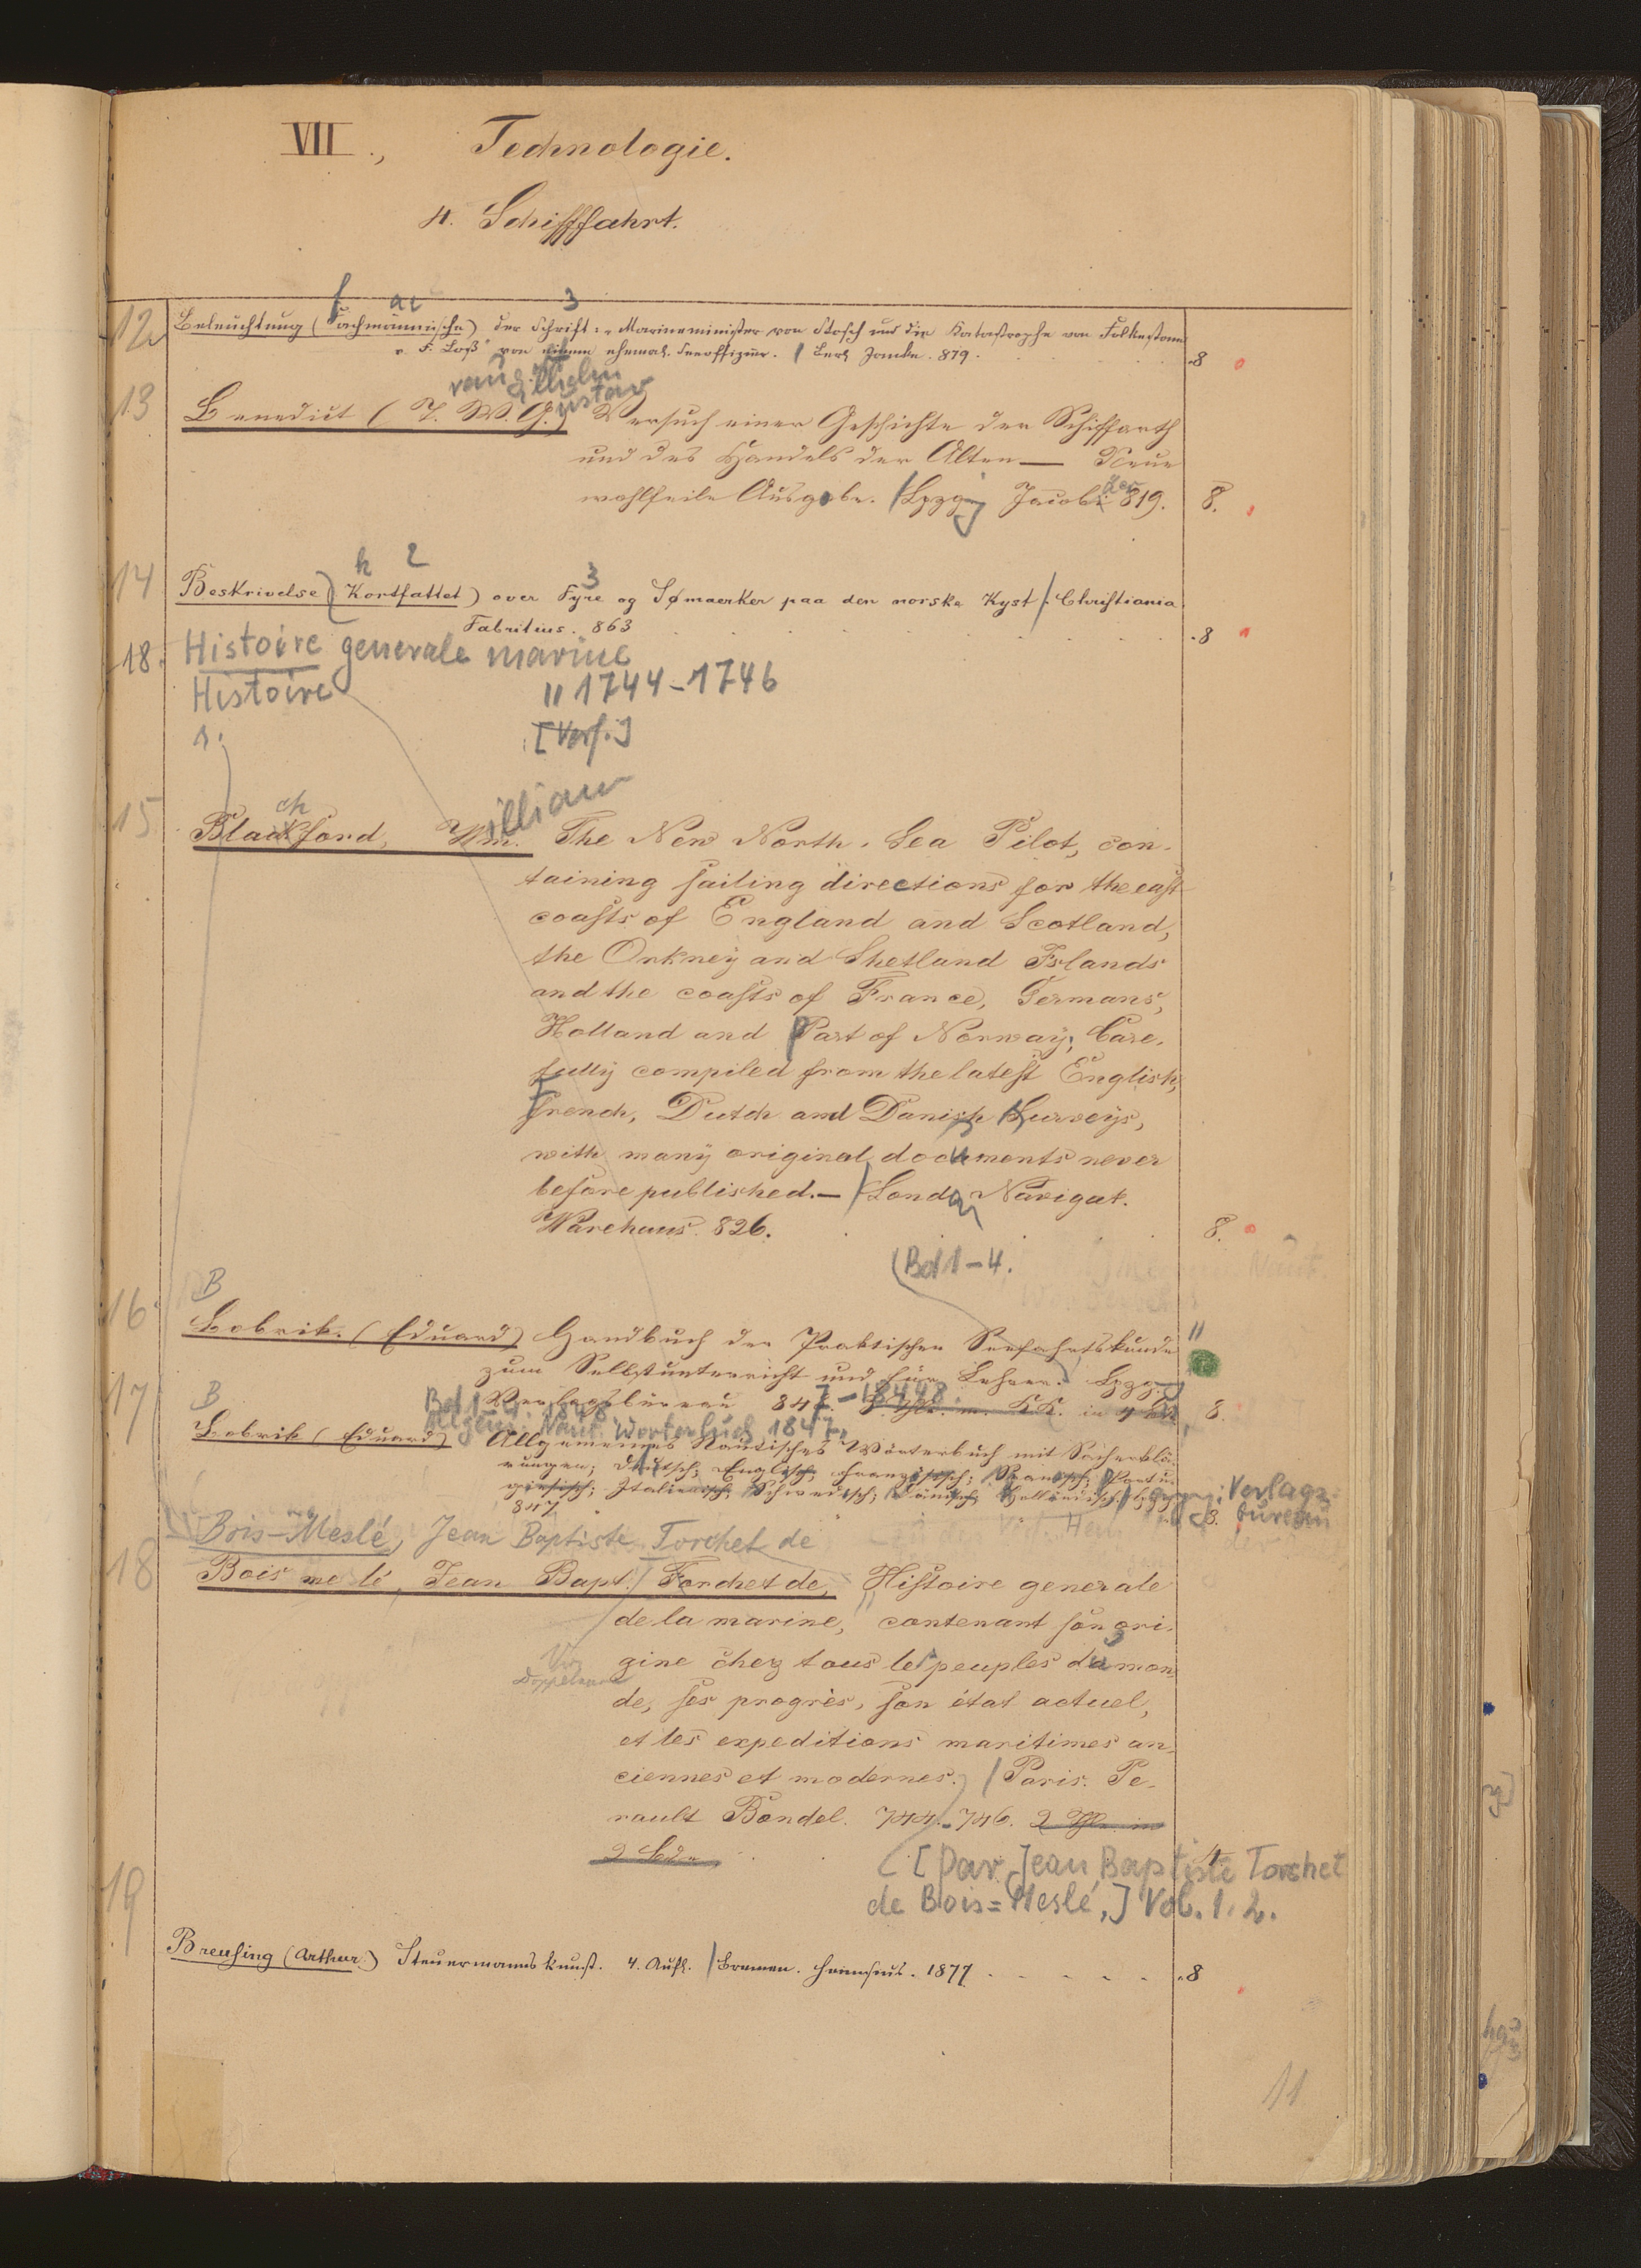 VII., Technologie.
4. Schifffahrt.
f ae 3
12
Beleuchtung (Fachmännische) der Schrift: „Marineminister von Stosch und die Katastrophe von Folkestone
v. F. Loß" von einem ehemal. Seeoffizier. / Berl. Janke. 879.
8
ilhelm
ustav
13
Benedict (T. W. G.) Versuch einer Geschichte der Schiffarth
und des Handels der Alten — Neue
wohlfeile Ausgabe. / Lpzg Jacobi 819.
8.
h 2 3
14
Beskrivelse (Kortfattet) over Fyre og Sømaerker paa den norske Kyst /. Christiania
Fabritius. 863
8
18. Histoire generale marine
Histoire " 1744-1746
1. [Verf.]
ch illiam
15
Blackford, Wm. The New North. Sea Pilot, con-
taining sailing directions for the east
coasts of England and Scotland,
the Orkney and Shetland Islands
and the coasts of France, Germans,
Holland and Part of Norway; Care-
fully compiled from the latest English,
French, Dutch and Danish Surveys,
with many original documents never
before published. — / London Navigat.
Warehaus. 826.
8.
(Bd 1-4.
B
16
Bobrik. (Eduard) Handbuch der Praktischen Seefahrtskunde
zum Selbstunterricht und für Lehrer. Lpzg.
Verlagsbüreau 84
7-1848.
8.
B
17
Allgem. Naut. Wörterbuch 1847.
Bobrik (Eduard) Allgemeines Nautisches Wörterbuch mit Sacherklä-
rungen; deutsch; Englisch; französisch; Spanisch; Portu-
giesisch; Italienisch; Schwedisch; Dänisch; Holländisch. / Lpzg: Verlags-
847
8. büreau
Bois-Meslé, Jean Baptiste Torchet de
18
Bois meslé, Jean Bapt. Forchet de, Histoire generale
de la marine, contenant son ori-
gine chez tous les peuples du mon-
Doppelt
de, ses progrès, son état actuel,
et les expeditions maritimes an-
ciennes et modernes. / Paris. Pe-
rault Bondel. 744-746. 2 Thle in
2 Bdn
4
[par Jean Baptiste Torchet
de Bois=Meslé,] Vol. 1. 2.
19
Breusing (Arthur) Steuermannskunst. 4. Aufl. / Bremen. Heinsius. 1877
8
11